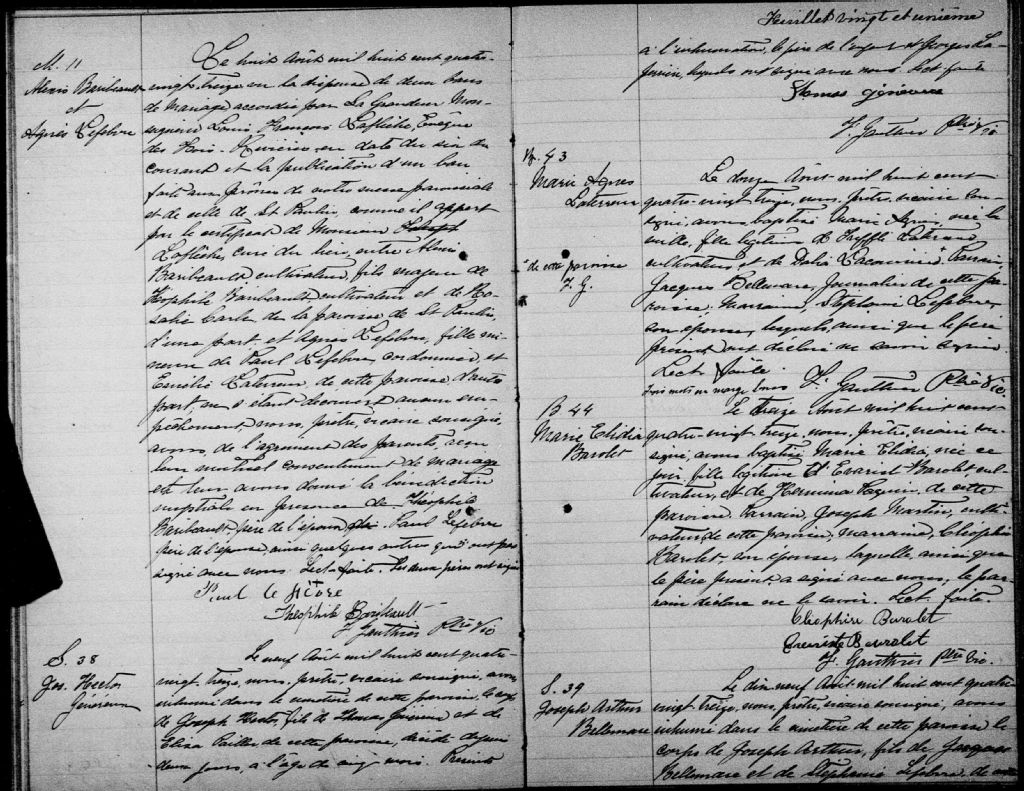 M. 11
Alexis Baribeault
et
Agnès Lefebvre
Le huit Août mil huit cent quatre-
vingt-treize vu la dispense de deux bans
de mariage accordée par Sa Grandeur Mon-
seigneur Louis François Laflèche, Evêque
des Trois-Rivières en date du six du
courant et la publication d'un ban
faite aux prônes de notre messe paroissiale
et de celle de St Paulin, comme il appert
par le certificat de Monsieur Joseph
Laflèche, curé du lieu, entre Alexis
Baribeault cultivateur, fils majeur de
Théophile Baribeault cultivateur et de Ro-
salie de la paroisse de St Paulin
d'une part, et Agnès Lefebvre, fille mi-
neure de Paul Lefebvre, cordonnier, et
Emélie Laterreur de cette paroisse d'autre
part, ne s'étant découvert aucun em-
pêchement, nous, prêtre, vicaire soussigné,
avons, de l'agrément des parents, reçu
leur mutuel consentement de mariage
et leur avons donné la bénédiction
nuptiale en présence de Théophile
Baribeault, père de l'époux, de Paul Lefebvre
père de l'épouse, ainsi quelques autres qui n'ont pas
signé avec nous. Lecture faite. Les deux pères ont signé
Paul le fèbre
Théophile Baribeault
F. Gauthier Ptre Vic
S. 38
Jos. Hector
Généreux
Le neuf Août mil huit cent quatre
vingt-treize, nous, prêtre, vicaire soussigné, avons
inhumé dans le cimetière de cette paroisse le corps
de Joseph Hector, fils de Thomas Généreux et de
Eliza Paillé de cette paroisse, décédé depuis
deux jours, à l'âge de cinq mois. Présents
Feuillet vingt et unième
à l'inhumation, le père de l'enfant et Georges La-
, lesquels ont signé avec nous. Lect. faite
Thomas généreux
F. Gauthier Ptre Vic
B. 43
Marie Agnès
Laterreur
"de cette paroisse
F. G.
Le douze Août mil huit cent
quatre-vingt treize, nous, prêtre, vicaire sous-
signé, avons baptisé Marie Agnès, née la
veille, fille légitime de Trefflé Laterreur
cultivateur et de Dalia . Parrain,
Jacques Bellemare, Journalier de cette pa-
roisse, Marraine, Stéphanie Lefebvre,
son épouse, lesquels, ainsi que le père
présent ont déclaré ne savoir signer.
Lect faite.
Trois mots en marge, bons F. Gauthier Ptre Vic.
B 44
Marie Elidia
Barolet
Le treize Août mil huit cent
quatre-vingt treize, nous, prêtre, vicaire sous-
signé, avons baptisé Marie Elidia, née ce
jour, fille légitime d'Evariste Barolet, cul-
tivateur, et de Hermina Paquin, de cette
paroisse. Parrain, Joseph Martin, culti-
vateur, de cette paroisse, marraine, Cléophire
Barolet, son épouse, laquelle ainsi que
le père présent, a signé avec nous, le par-
rain déclare ne le savoir. Lect. faite.
Cléophire Barolet
Evariste Barolet
F. Gauthier Ptre Vic.
S. 39
Joseph Arthur
Bellemare
Le dix neuf Août mil huit cent quatre
vingt treize, nous, prêtre, vicaire soussigné, avons
inhumé dans le cimetière de cette paroisse le
corps de Joseph Arthur, fils de Jacques
Bellemare et de Stéphanie Lefebvre, de cette